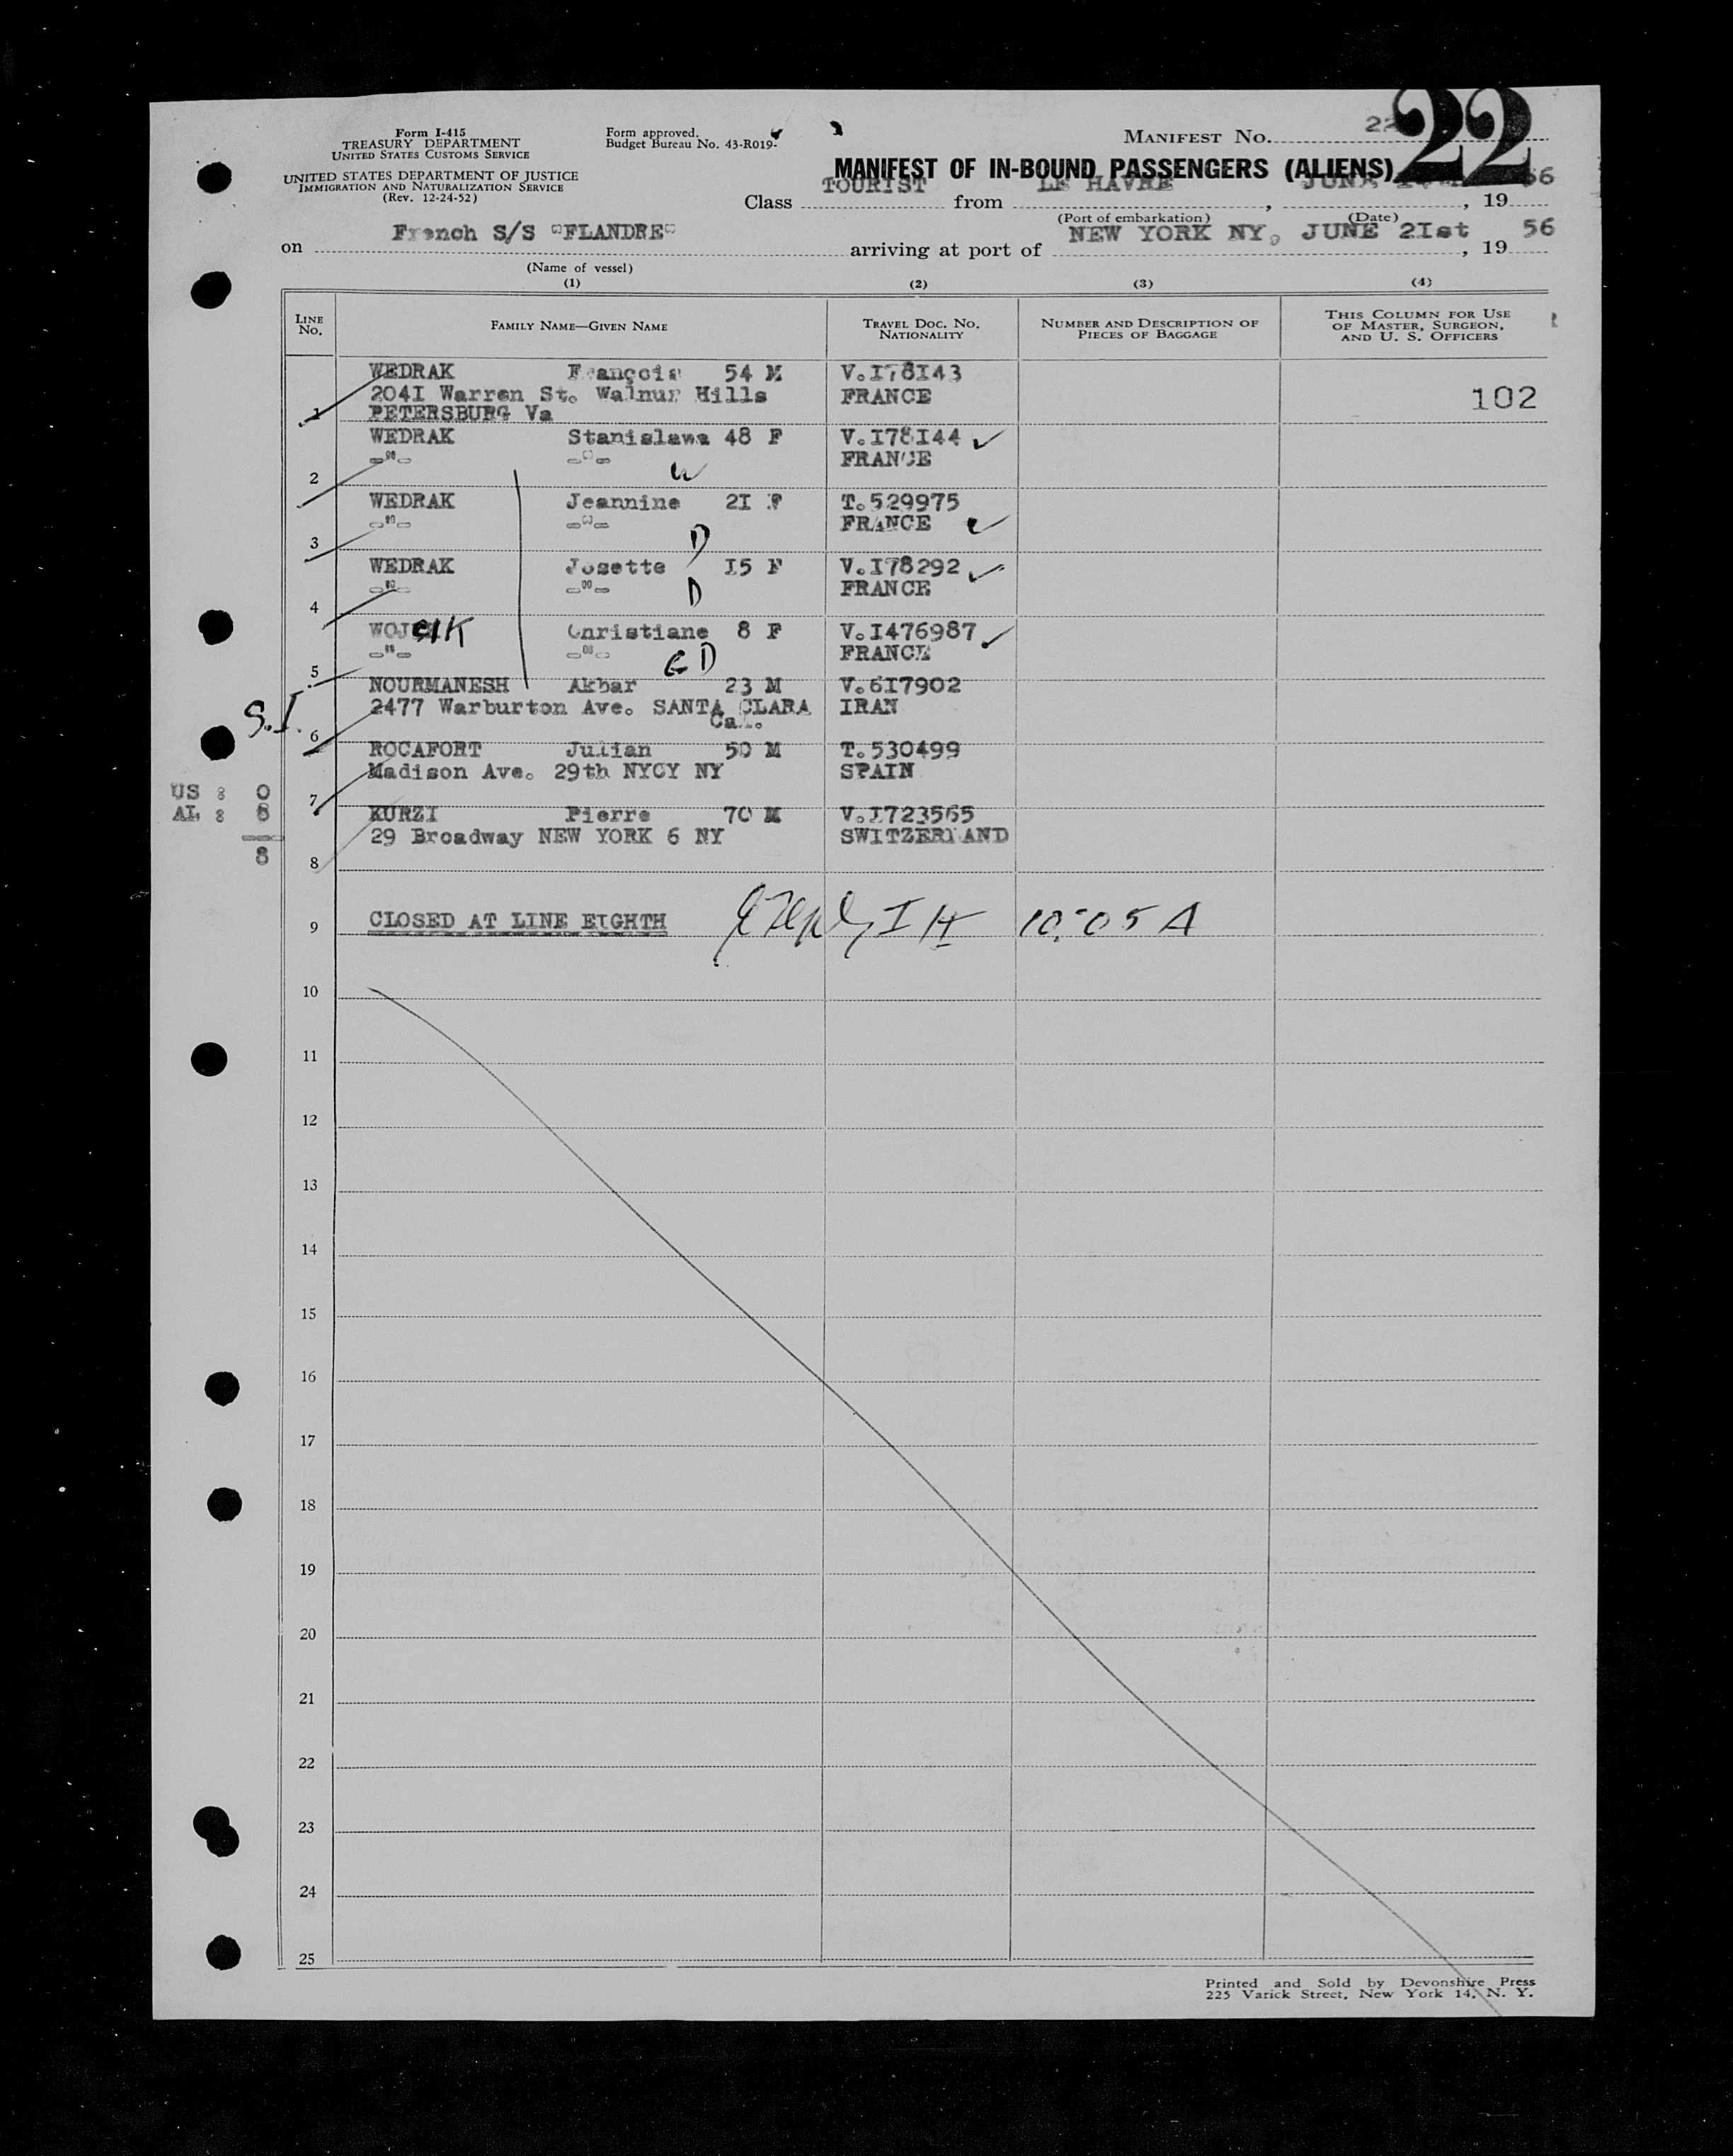 Form I-415
TREASURY DEPARTMENT
UNITED STATES CUSTOMS SERVICE
UNITED STATES DEPARTMENT OF JUSTICE
IMMIGRATION AND NATURALIZATION SERVICE
(Rev. 12-24-52)
Form approved.
Budget Bureau No. 43-R019-
MANIFEST NO. 22
22
MANIFEST OF IN-BOUND PASSENGERS (ALIENS)
Class TOURIST from LE HAVRE, JUNE, 19 56
(Port of embarkation) (Date)
on French S/S "FLANDRE" arriving at port of NEW YORK NY, JUNE 2Ist, 19 56
(Name of vessel)
(1) (2) (3) (4)
LINE No. FAMILY NAME—GIVEN NAME TRAVEL DOC. NO. NATIONALITY NUMBER AND DESCRIPTION OF PIECES OF BAGGAGE THIS COLUMN FOR USE OF MASTER, SURGEON, AND U. S. OFFICERS
WEDRAK François 54 M V.I78I43
204I Warren St. Walnur Hills FRANCE 102
1 PETERSBURG Va
WEDRAK Stanislawa 48 F V.I78I44
-"- -"- FRANCE
2 W
WEDRAK Jeannine 2I F T.529975
-"- -"- FRANCE
3 D
WEDRAK Josette I5 F V.I78292
-"- -"- FRANCE
4 D
WOJCIK Christiane 8 F V.I476987
-"- -"- FRANCE
5 GD
NOURMANESH Akbar 23 M V.6I7902
S.I. 2477 Warburton Ave. SANTA CLARA IRAN
6 Cal.
ROCAFORT Julian 50 M T.530499
Madison Ave. 29th NYCY NY SPAIN
US : 0
7
AL : 8
KURZI Pierre 70 M V.I723565
29 Broadway NEW YORK 6 NY SWITZERLAND
8
8
9 CLOSED AT LINE EIGHTH 10:05 A
10
11
12
13
14
15
16
17
18
19
20
21
22
23
24
25
Printed and Sold by Devonshire Press
225 Varick Street, New York 14, N. Y.